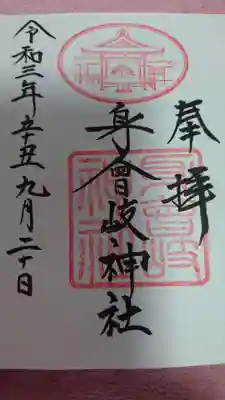 奉拝
身曾岐神社
令和三年辛丑九月二十日